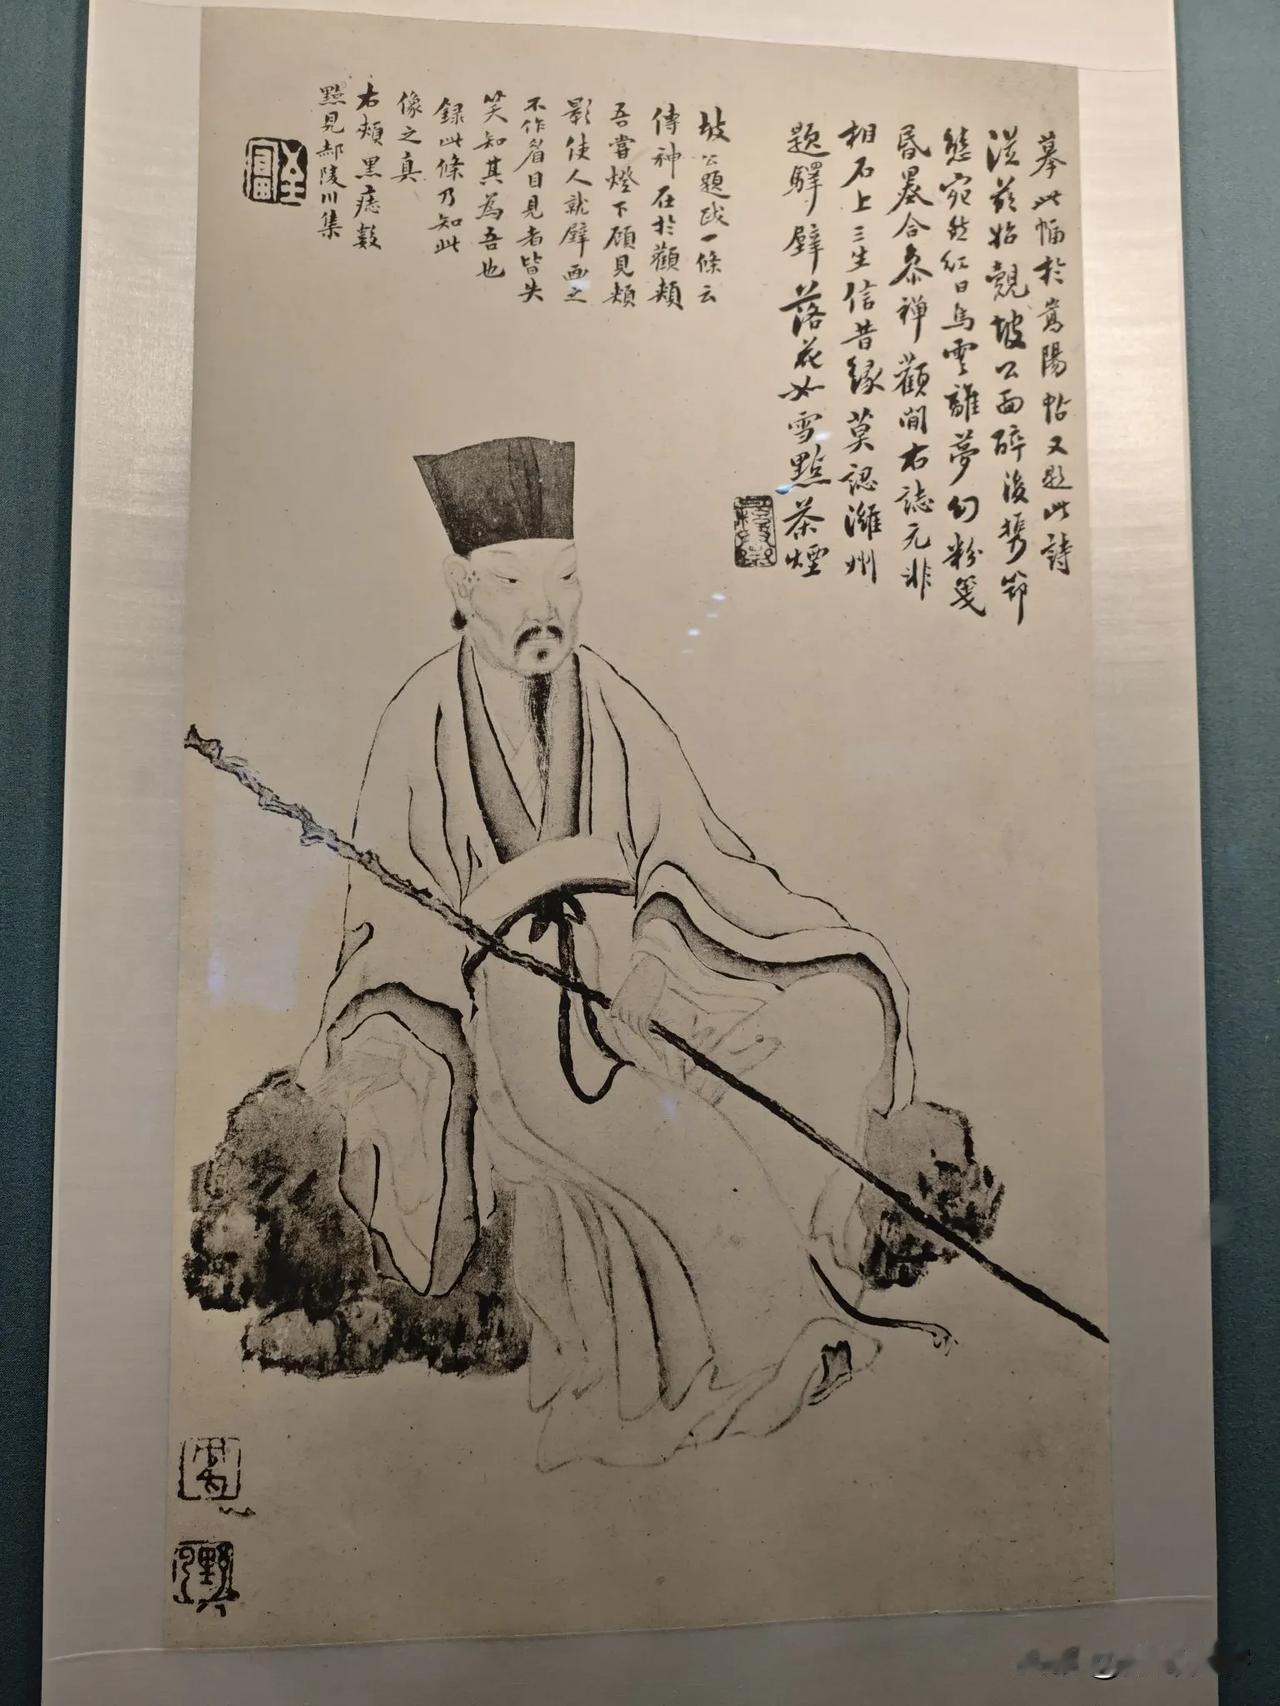 摹此幅於嵩陽帖又題此詩
從茲始覿坡公面醉後攜筇
態宛然紅日烏雲離夢幻粉箋
昏墨合參禪觀間右誌元非
相石上三生信昔緣莫認濰州
題驛壁落花如雪點茶煙
坡公題跋一條云
傳神在於顴頰
吾嘗燈下顧見頰
影使人就壁畫之
不作眉目見者皆失
笑知其為吾也
錄此條乃知此
像之真
右頰黑痣數
點見郝陵川集